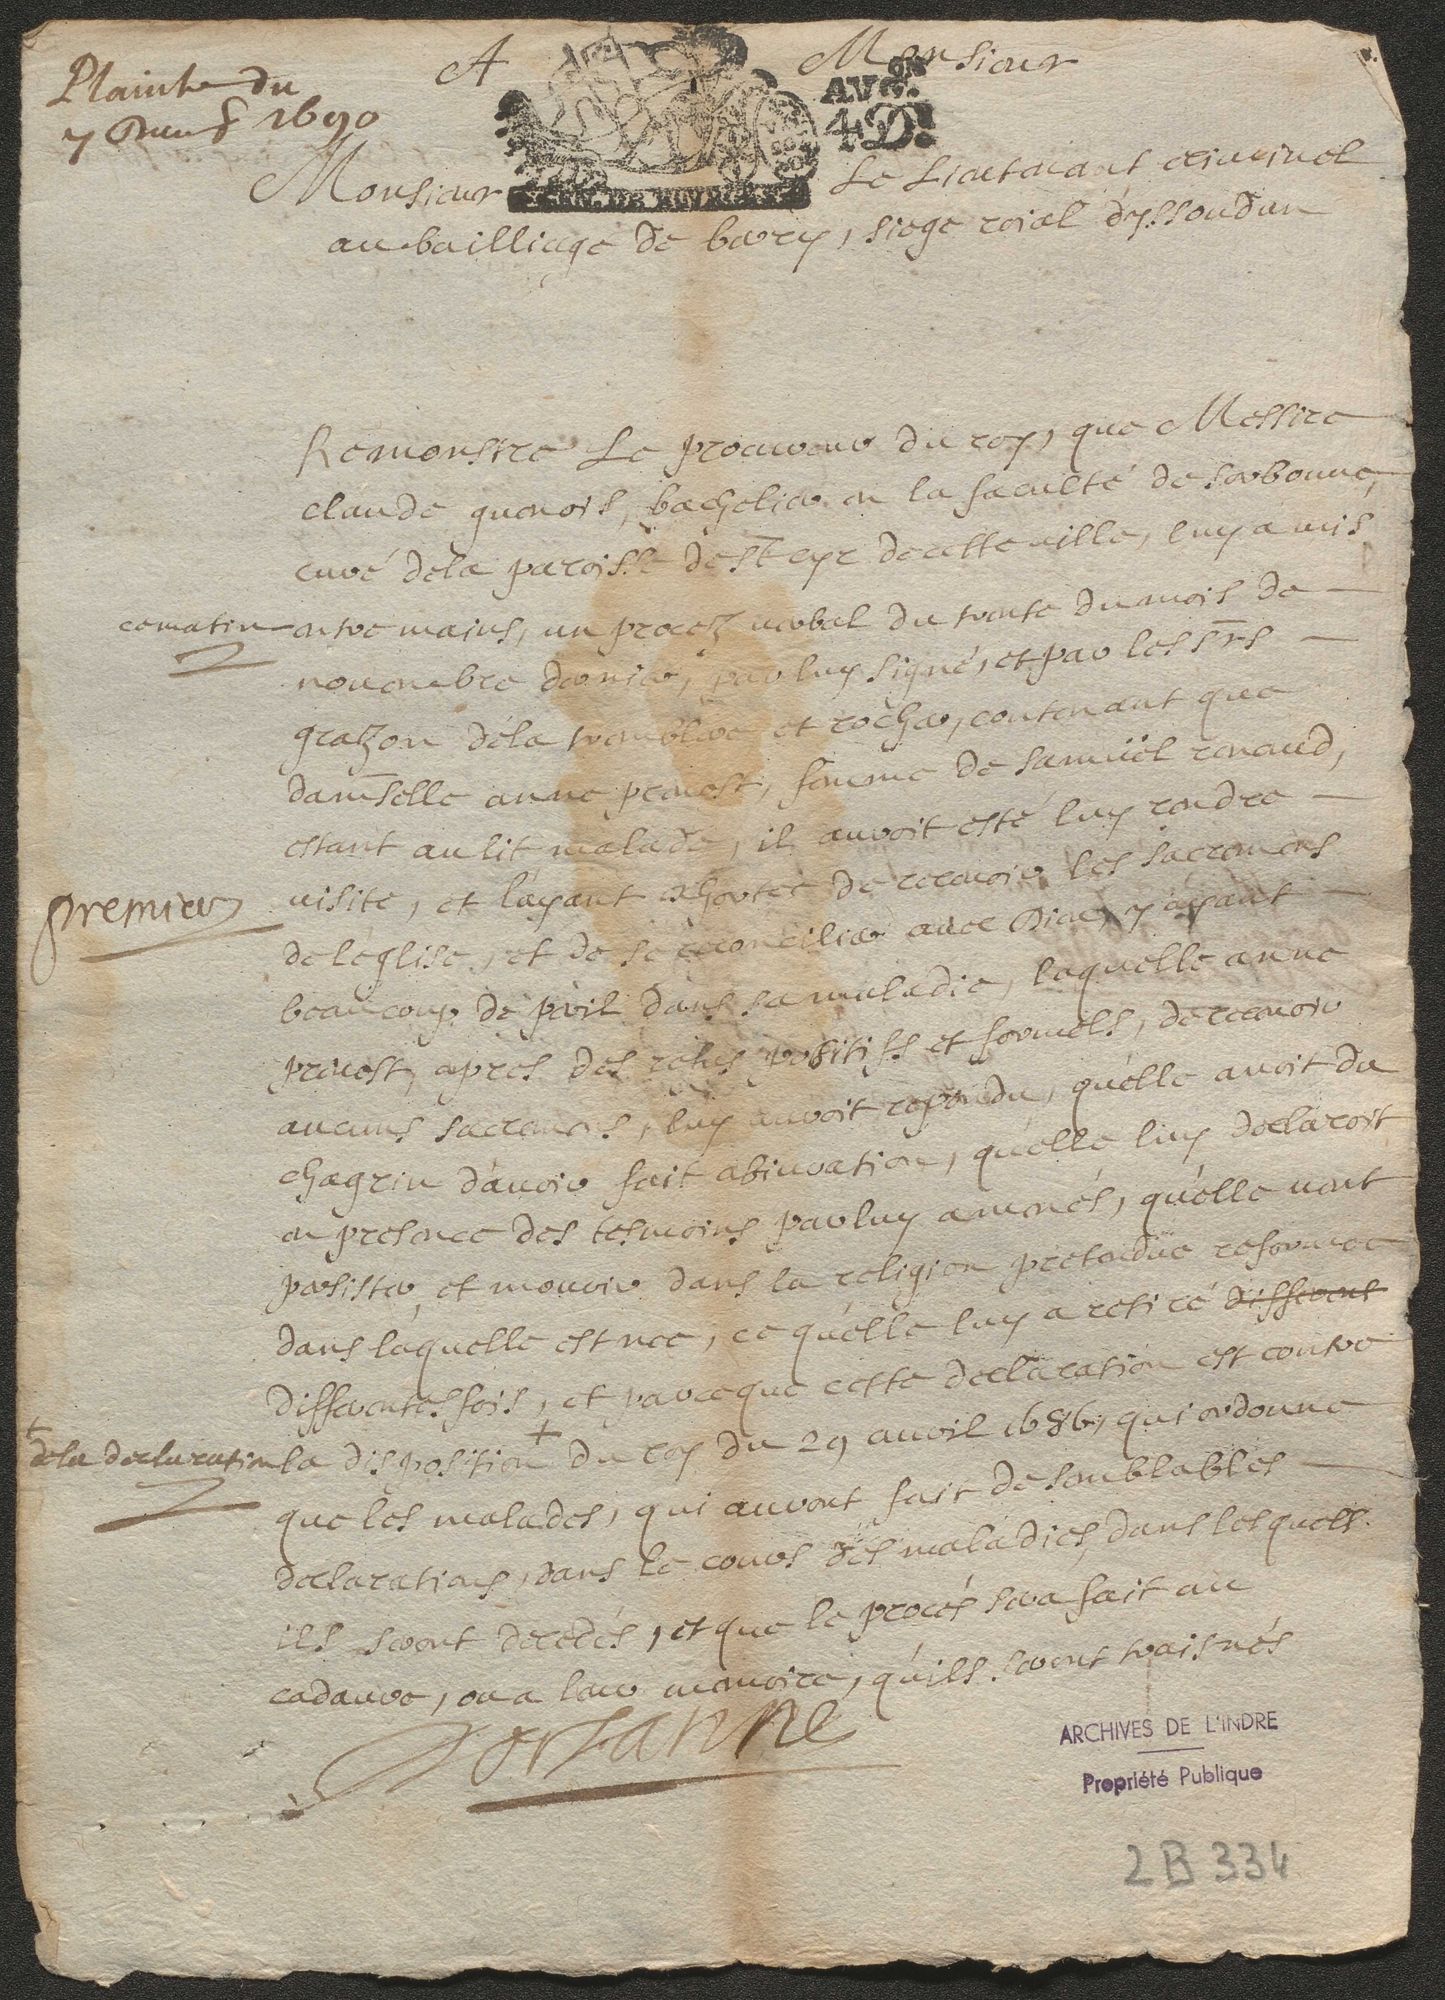 Plainte du
7 1690
A Monsieur
AVG. ON
4 D.
Monsieur Le Lieutenant criminel
au bailliage de berry, siege roial d'yssoudun
Remonstre Le procureur du roy, que Messire
claude quenois, bachelier en la faculté de sorbonne,
curé dela paroisse de St cyr de cette ville, luy a mis
ce matin
entre mains, un procez verbal du trente du mois de
novembre dernier, par luy signé, et par les Srs
grazon déla tremblere et rocher, contenant que
damselle anne prevost, femme de samüel renaud,
estant au lit malade, il auroit esté luy rendre
visite, et l'ayant exhortée de recevoir les sacremens
premier
de l'église, et de se reconcilier avec Dieu, y ayant
beaucoup de peril dans sa maladie, laquelle anne
prevost, apres des refus positifs et formels, de recevoir
aucuns sacremens, luy auroit repondu, qu'elle avoit du
chagrin d'avoir fait abiuration, qu'elle luy declaroit
en presence des tesmoins par luy amenés, qu'elle veut
persister, et mourir dans la religion pretendüe reformee
dans laquelle est nee, ce qu'elle luy a retiré different
differentes fois, et parce que cette declaration est contre
+
de la declaration
la disposition + du roy du 29 avril 1686, qui ordonne
que les malades, qui auront fait de semblables
declarations, dans le cours des maladies, dans lesquells
ils seront decedés, et que le procés sera fait au
cadavre, ou a leur memoire, qu'ils seront traisnés
Dorsanne
ARCHIVES DE L'INDRE
Propriété Publique
2 B 334